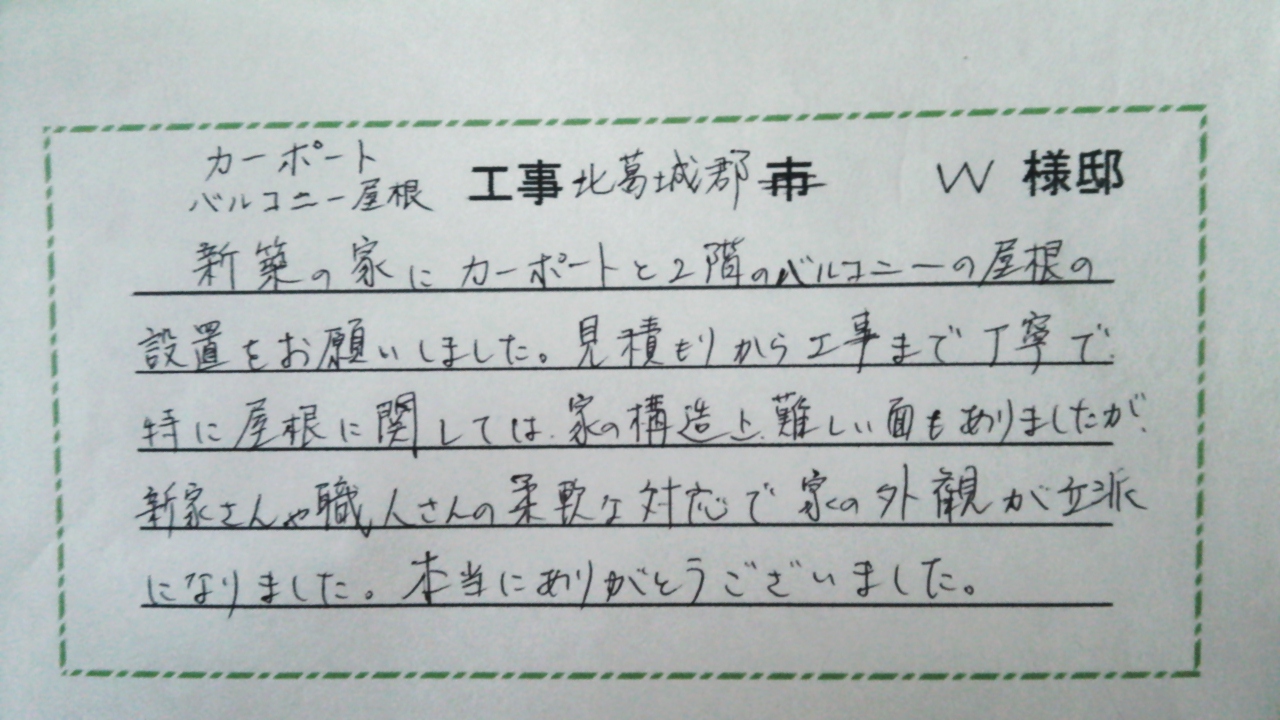 カーポート
バルコニー屋根 工事 北葛城郡 市 W 様邸
新築の家にカーポートと2階のバルコニーの屋根の
設置をお願いしました。見積もりから工事まで丁寧で、
特に屋根に関しては、家の構造上、難しい面もありましたが、
新家さんや職人さんの柔軟な対応で家の外観が立派
になりました。本当にありがとうございました。